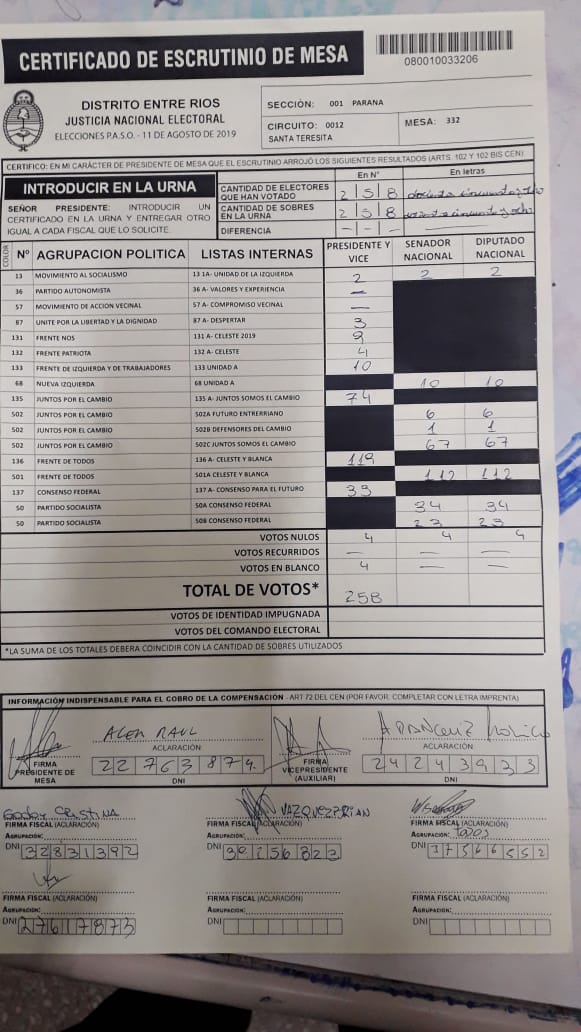 CERTIFICADO DE ESCRUTINIO DE MESA
080010033206
DISTRITO ENTRE RIOS
JUSTICIA NACIONAL ELECTORAL
ELECCIONES P.A.S.O. - 11 DE AGOSTO DE 2019
SECCIÓN: 001 PARANA
CIRCUITO: 0012
SANTA TERESITA
MESA: 332
CERTIFICO: EN MI CARÁCTER DE PRESIDENTE DE MESA QUE EL ESCRUTINIO ARROJÓ LOS SIGUIENTES RESULTADOS (ARTS. 102 Y 102 BIS CEN)
INTRODUCIR EN LA URNA
SEÑOR PRESIDENTE: INTRODUCIR UN
CERTIFICADO EN LA URNA Y ENTREGAR OTRO
IGUAL A CADA FISCAL QUE LO SOLICITE.
En N° En letras
CANTIDAD DE ELECTORES QUE HAN VOTADO 2 5 8
CANTIDAD DE SOBRES EN LA URNA 2 5 8
DIFERENCIA - - -
COLOR N° AGRUPACION POLITICA LISTAS INTERNAS PRESIDENTE Y VICE SENADOR NACIONAL DIPUTADO NACIONAL
13 MOVIMIENTO AL SOCIALISMO 13 1A- UNIDAD DE LA IZQUIERDA 2 2 2
36 PARTIDO AUTONOMISTA 36 A- VALORES Y EXPERIENCIA —
57 MOVIMIENTO DE ACCION VECINAL 57 A- COMPROMISO VECINAL —
87 UNITE POR LA LIBERTAD Y LA DIGNIDAD 87 A- DESPERTAR 3
131 FRENTE NOS 131 A- CELESTE 2019 9
132 FRENTE PATRIOTA 132 A- CELESTE 4
133 FRENTE DE IZQUIERDA Y DE TRABAJADORES 133 UNIDAD A 10
68 NUEVA IZQUIERDA 68 UNIDAD A 10 10
135 JUNTOS POR EL CAMBIO 135 A- JUNTOS SOMOS EL CAMBIO 74
502 JUNTOS POR EL CAMBIO 502A FUTURO ENTRERRIANO 6 6
502 JUNTOS POR EL CAMBIO 502B DEFENSORES DEL CAMBIO 1 1
502 JUNTOS POR EL CAMBIO 502C JUNTOS SOMOS EL CAMBIO 67 67
136 FRENTE DE TODOS 136 A- CELESTE Y BLANCA 119
501 FRENTE DE TODOS 501A CELESTE Y BLANCA 112 112
137 CONSENSO FEDERAL 137 A- CONSENSO PARA EL FUTURO 33
50 PARTIDO SOCIALISTA 50A CONSENSO FEDERAL 34 34
50 PARTIDO SOCIALISTA 50B CONSENSO FEDERAL 23 23
VOTOS NULOS 4 4 4
VOTOS RECURRIDOS — — —
VOTOS EN BLANCO 4 — —
TOTAL DE VOTOS* 258
VOTOS DE IDENTIDAD IMPUGNADA
VOTOS DEL COMANDO ELECTORAL
*LA SUMA DE LOS TOTALES DEBERA COINCIDIR CON LA CANTIDAD DE SOBRES UTILIZADOS
INFORMACIÓN INDISPENSABLE PARA EL COBRO DE LA COMPENSACIÓN - ART 72 DEL CEN (POR FAVOR, COMPLETAR CON LETRA IMPRENTA)
RAUL
ACLARACIÓN ACLARACIÓN
FIRMA PRESIDENTE DE MESA 22763874 DNI
FIRMA VICEPRESIDENTE (AUXILIAR) 24243933 DNI
VAZQUEZ
FIRMA FISCAL (ACLARACIÓN) FIRMA FISCAL (ACLARACIÓN) FIRMA FISCAL (ACLARACIÓN)
AGRUPACIÓN: AGRUPACIÓN: AGRUPACIÓN: TODOS
DNI 32831392 DNI 30256323 DNI 37566552
FIRMA FISCAL (ACLARACIÓN) FIRMA FISCAL (ACLARACIÓN) FIRMA FISCAL (ACLARACIÓN)
AGRUPACIÓN: AGRUPACIÓN: AGRUPACIÓN:
DNI 27617873 DNI DNI